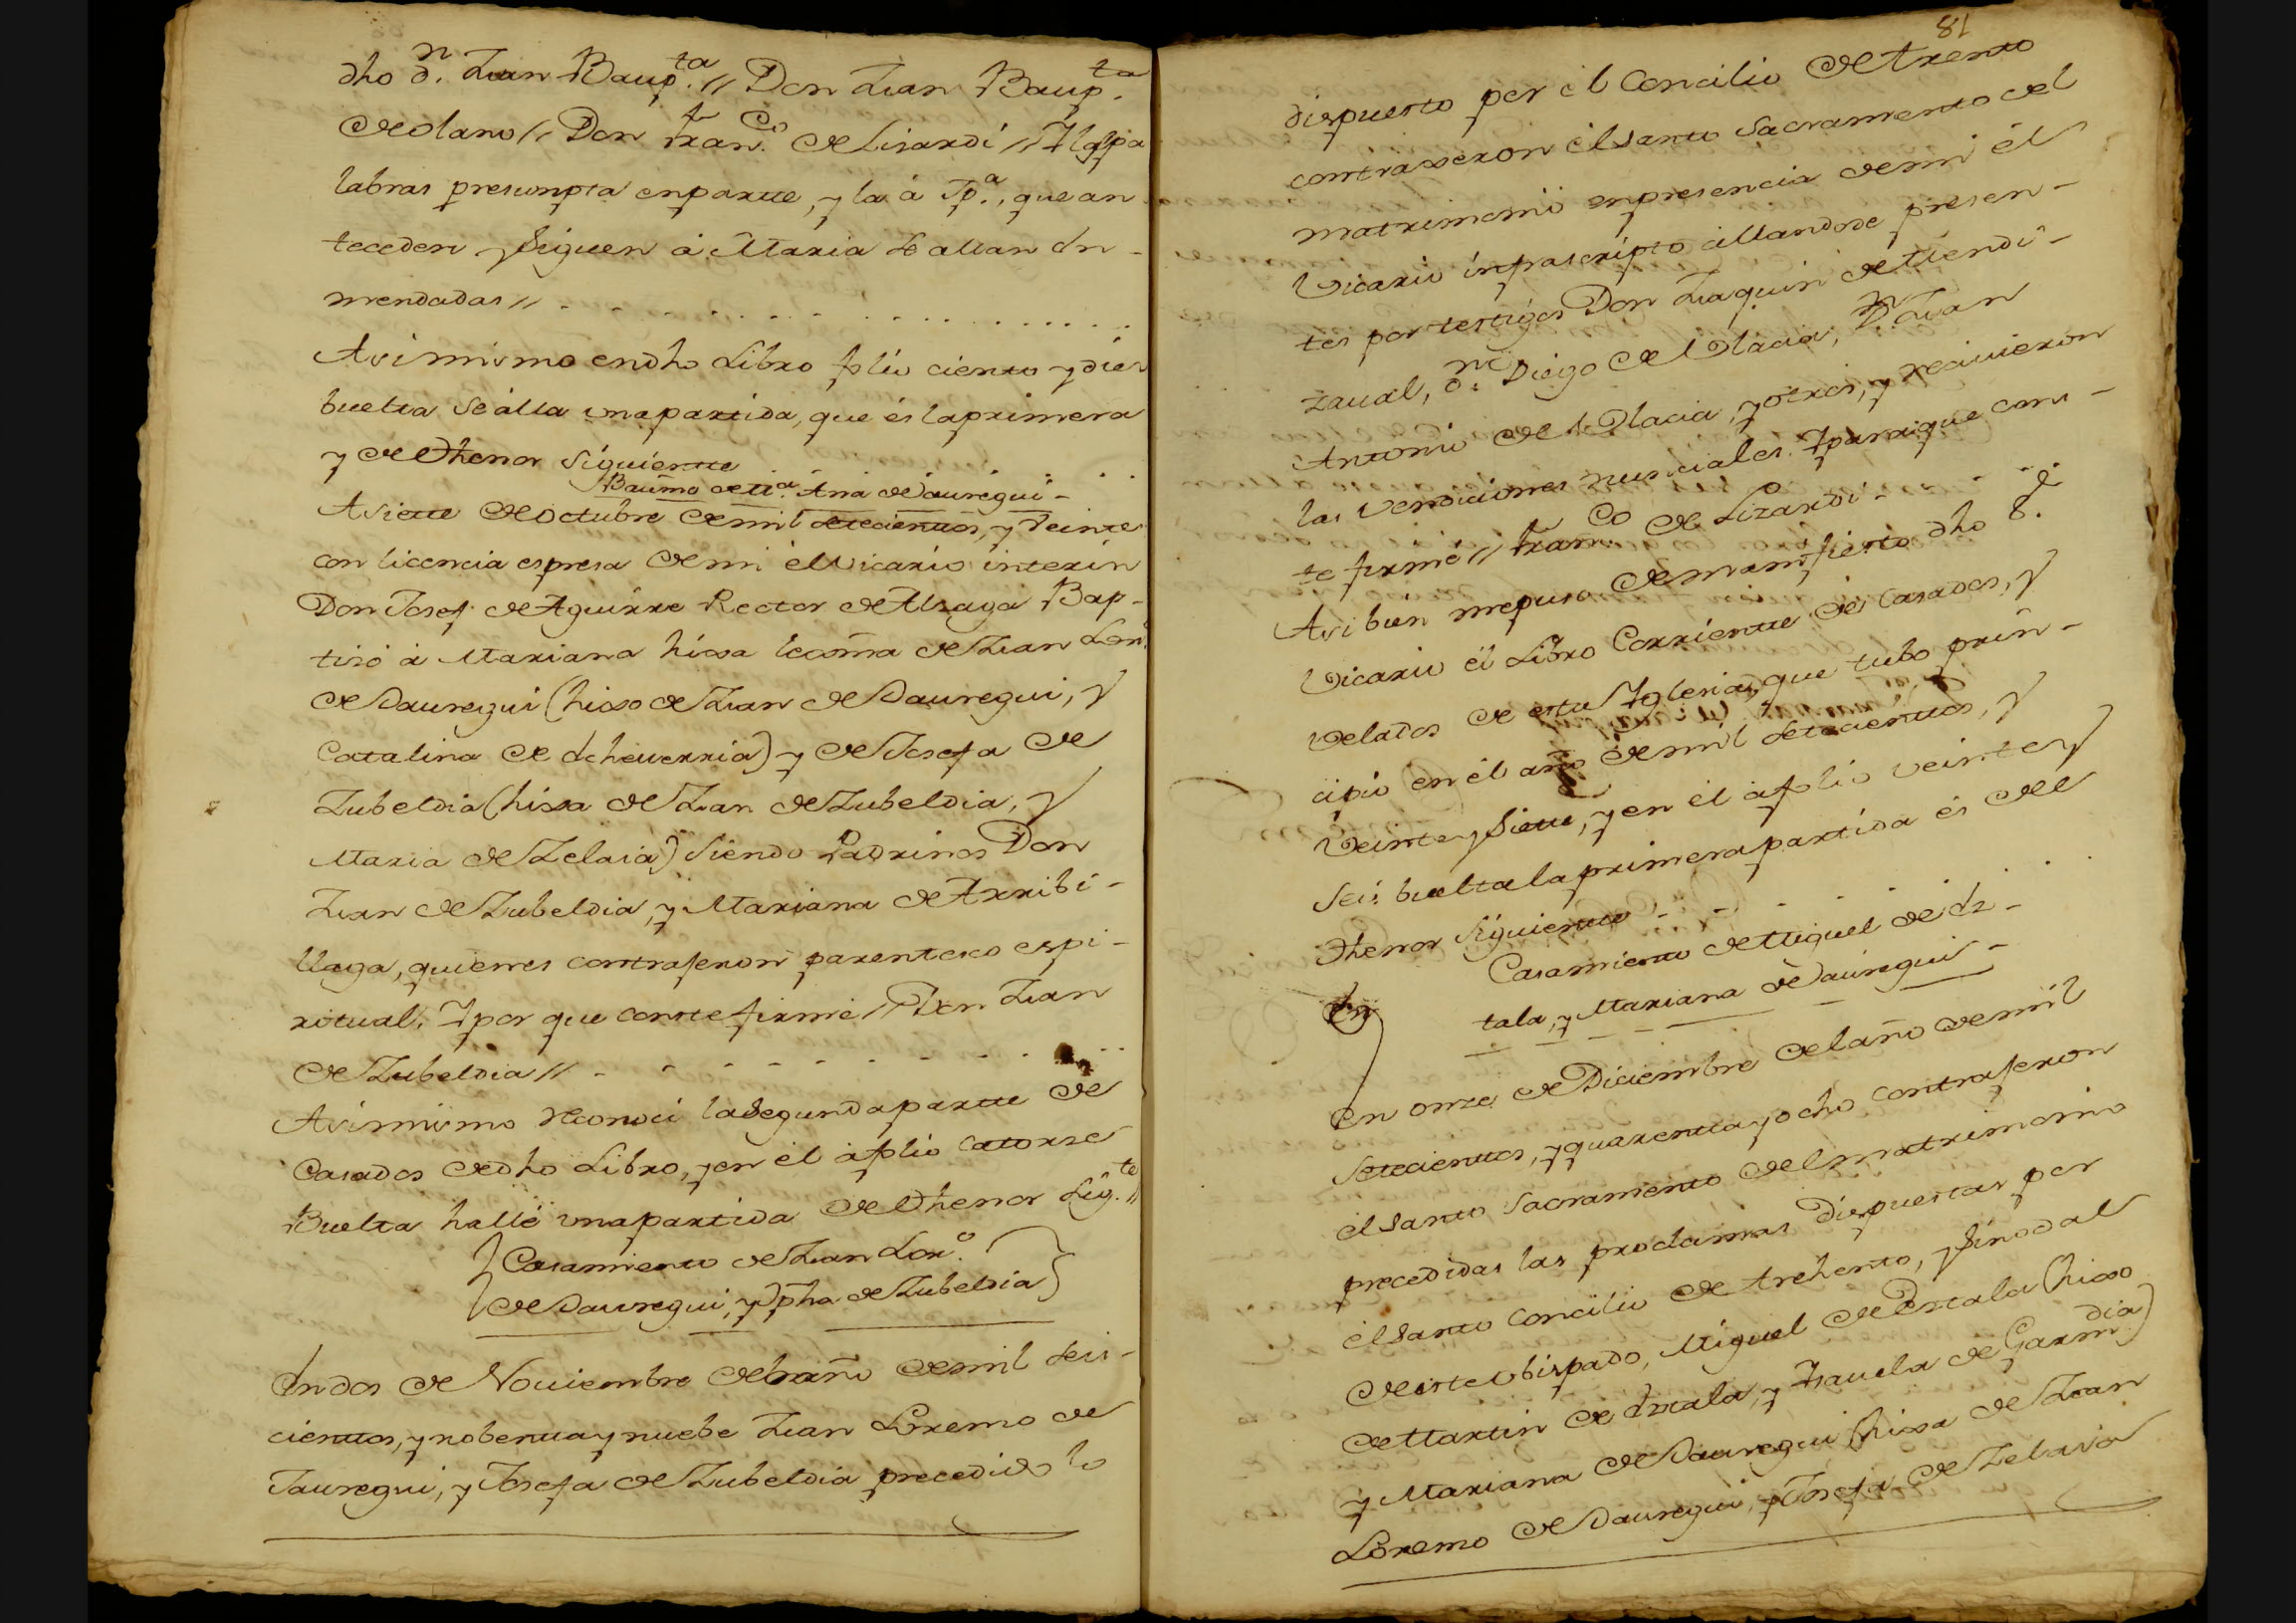 dho d.n Juan Baup.ta // Don Juan Baup.ta
de olano // Don Fran.co de Lisardi // I las pa
labras presumpta en partte, y la â Jp.a, que an
teceden y siguen â Maria se allan En-
mendadas //
Asimismo en dho Libro folio ciento y dies
buelta se âlla una partida, que és la primera
y de Dthenor siguientte
Baumo de M.a Ana de Jauregui -
A siette de octubre de mil setecienttos, y Veinte
con licencia espresa de mi êl Vicario interin
Don Josef de Aguirre Rector de Alzaga Bap-
tisó â Mariana hixa lexma de Juan Lor.o
de Jauregui (hixo de Juan de Jauregui, y
Catalina de Echeuerria) y de Josefa de
Zubeldia (hixa de Juan de Zubeldia, y
Maria de Zelaia) siendo Padrinos Don
Juan de Zubeldia, y Mariana de Arribi-
llaga, quienes contrajeron parentesco espi-
ritual, I por que conste firmé // Don Juan
de Zubeldia //
Asimismo reconoci la segunda partte de
Casados de dho Libro, y en él â folio catorze
Buelta hallé una partida de Dthenor sig.te //
Casamiento de Juan Lor.o
de Jauregui, y Jpha de Zubeldia
En dos de Nouiembre del año de mil seis-
cienttos, y nobentta y nuebe Juan Lorenzo de
Jauregui, y Josefa de Zubeldia precedido lo
81
dispuesto por êl Concilio de Trento
contraxeron êl santo sacramento del
matrimonio en presencia de mi êl
Vicario infrascripto allandose presen-
tes por testigos Don Juaquin de Mendi-
zaual, d.n Diego de Olacia, D.n Juan
Antonio de Olacia, y otros, y reciuieron
las Vendiciones nupciales. I para que cons-
te firmé // Fran.co de Lizardi -
Asi bien me puso de manifiesto dho S.r
Vicario êl Libro Corrientte de Casados, y
Velados de esta Iglesia, que tubo prin-
cipio en êl año de mil setecienttos, y
Veinte y siette, y en êl â folio veinte y
seis buelta la primera partida és del
Dthenor siguientte
Casamiento de Miguel de Ez-
cala, y Mariana de Jauregui -
En
En onze de Diciembre del año de mil
setecienttos, y quarentta y ocho contrajeron
êl santo sacramento del matrimonio
precedidas las proclamas dispuestas por
êl santo concilio de trehento, y sinodal
de este obispado, Miguel de Ezcala (hixo
de Martin de Ezcala, y Isauela de Garmdia)
y Mariana de Jauregui (hixa de Juan
Lorenzo de Jauregui, y Josefa de Zelaia